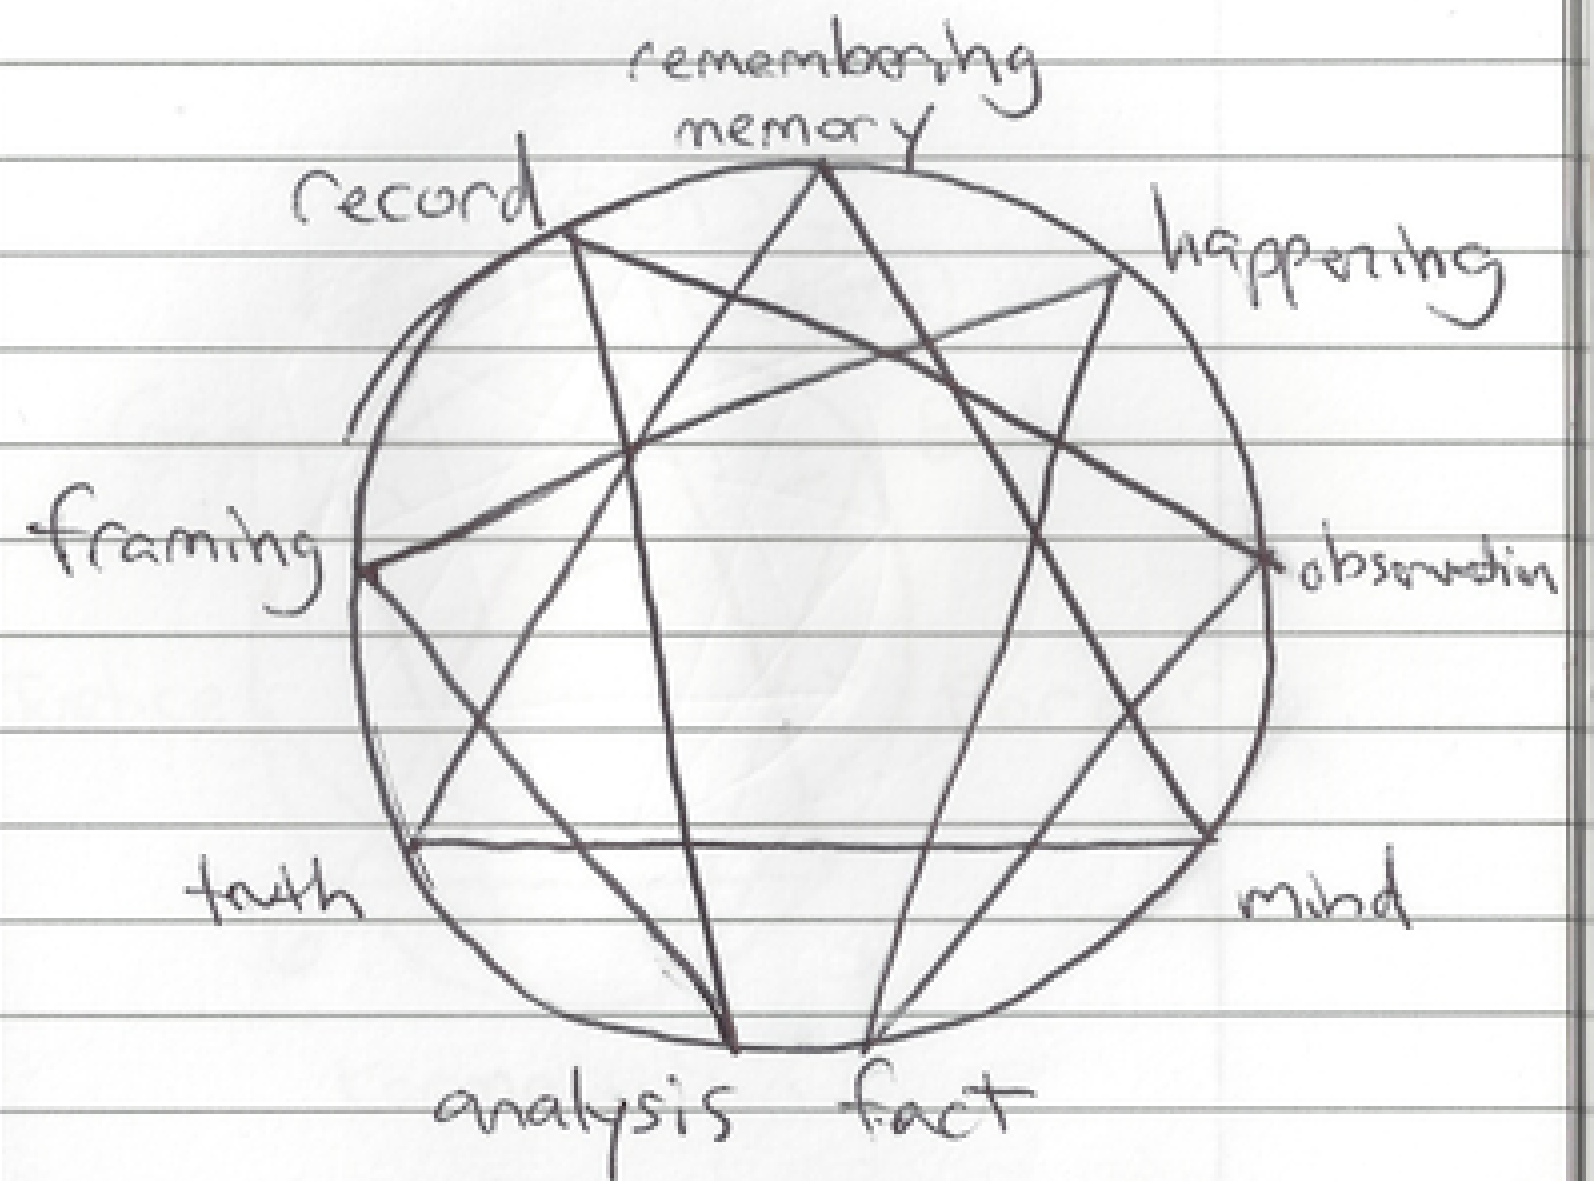 remembering
memory
record
happening
framing
observation
truth
mind
analysis
fact